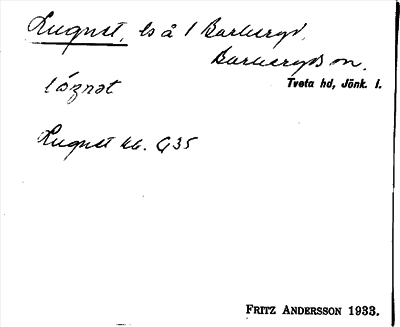 Lugnet, ls å 1 Barkeryd,
Barkeryds sn.
Tveta hd, Jönk. l.
Lugnet kb. G35
FRITZ ANDERSSON 1933.